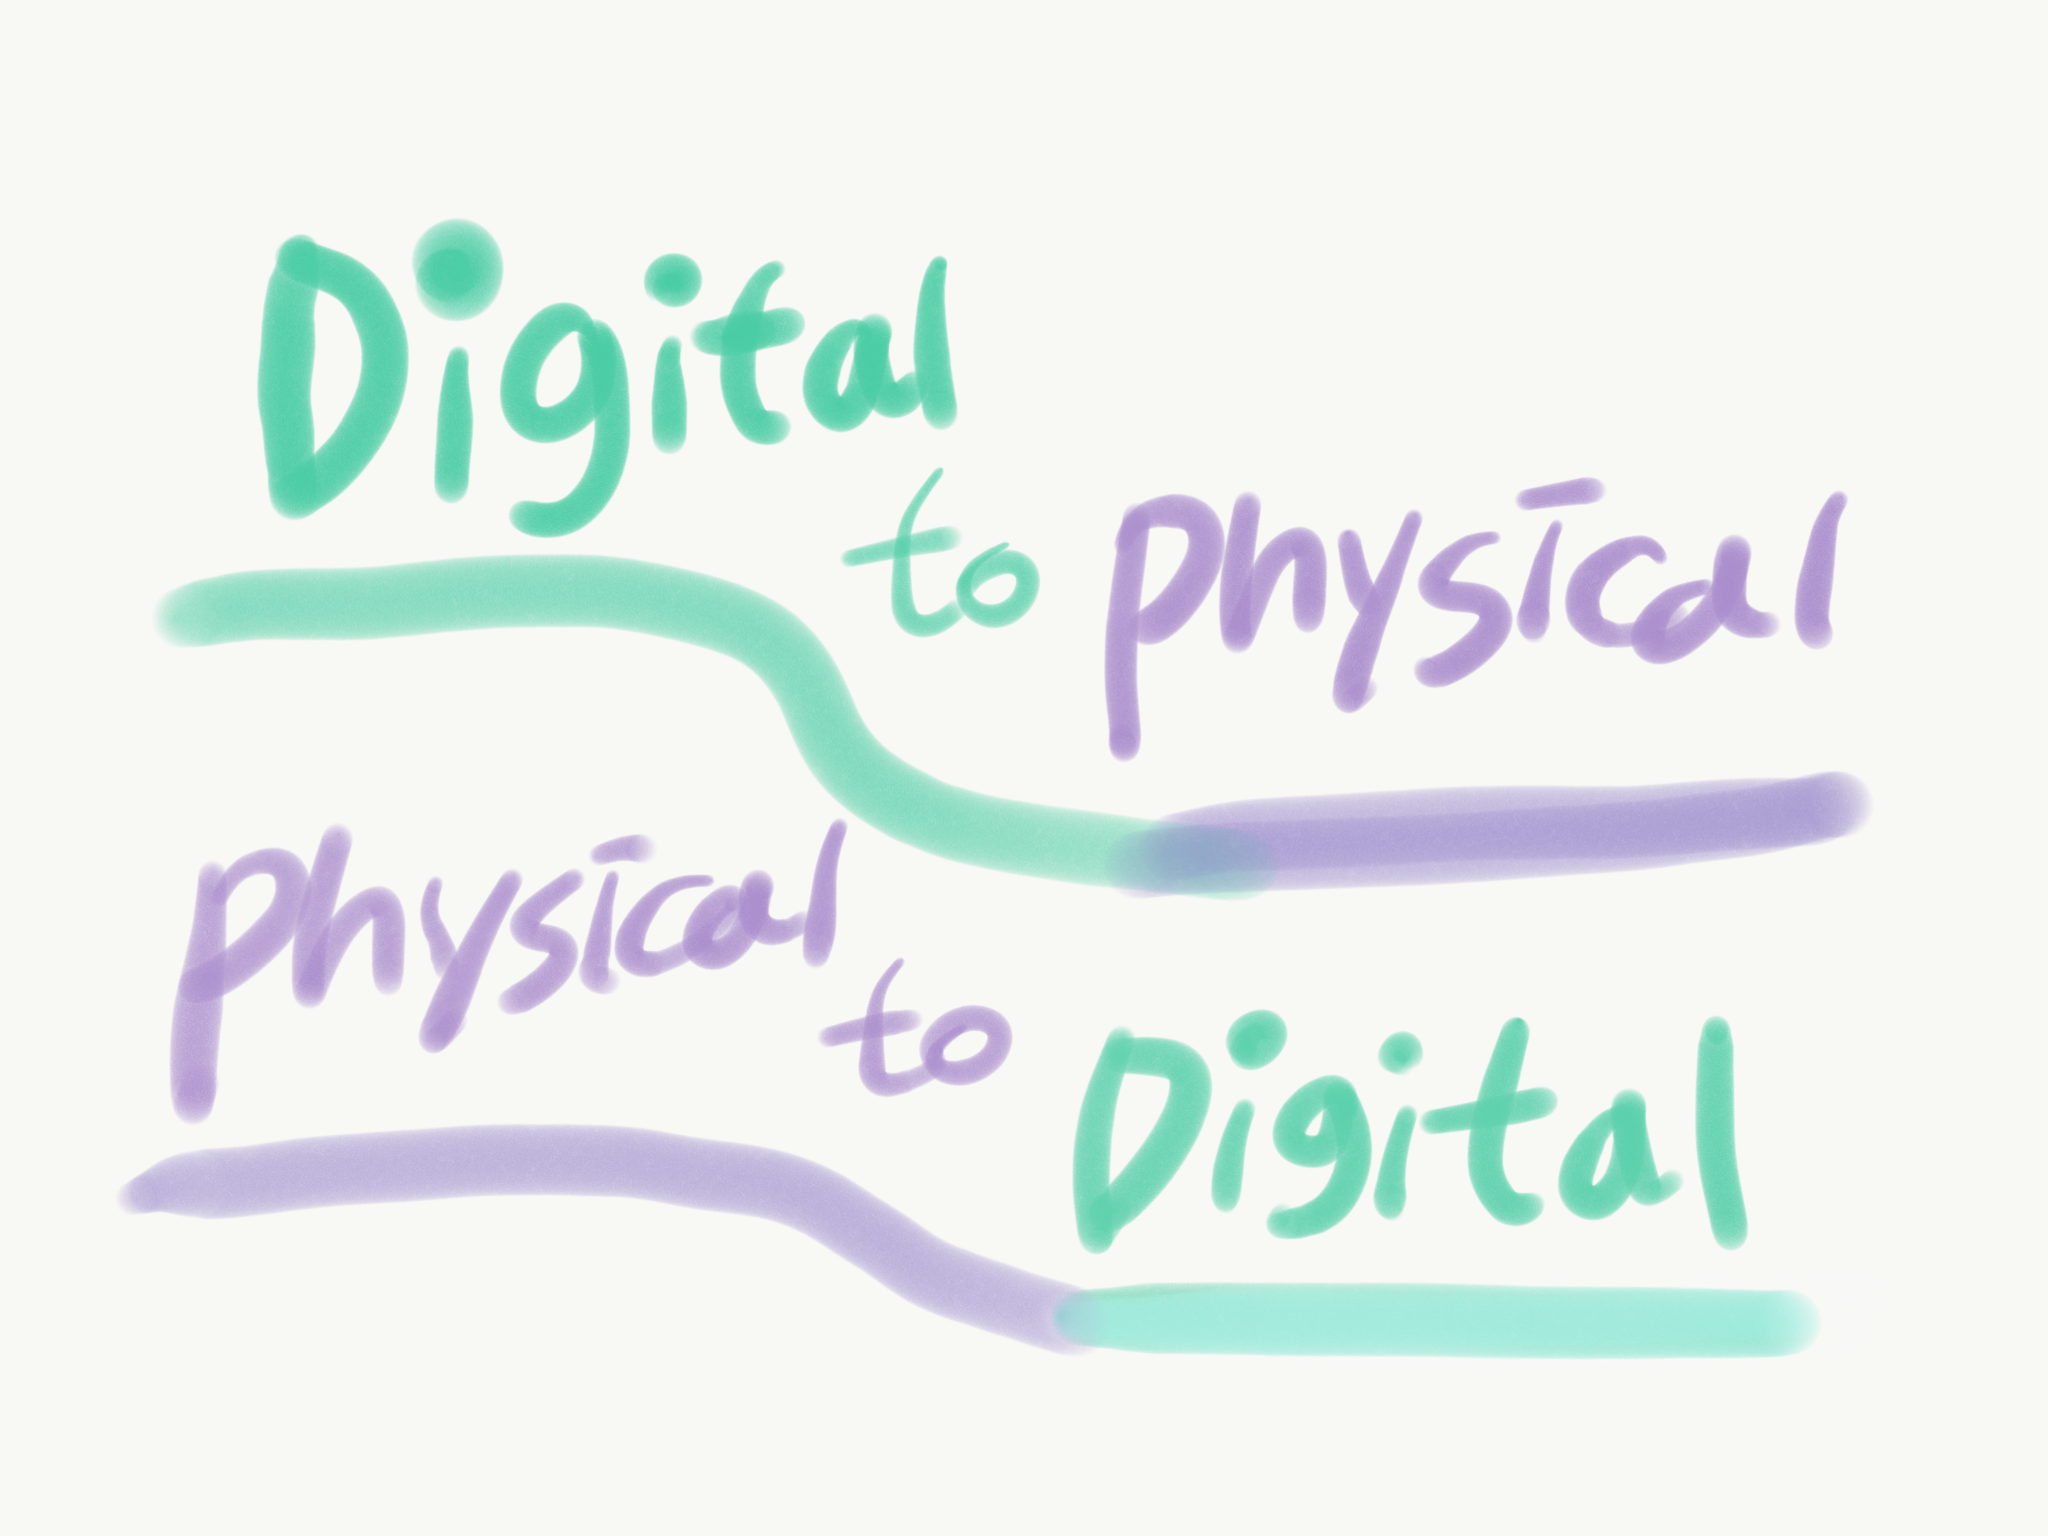 Digital
to Physical
Physical
to Digital